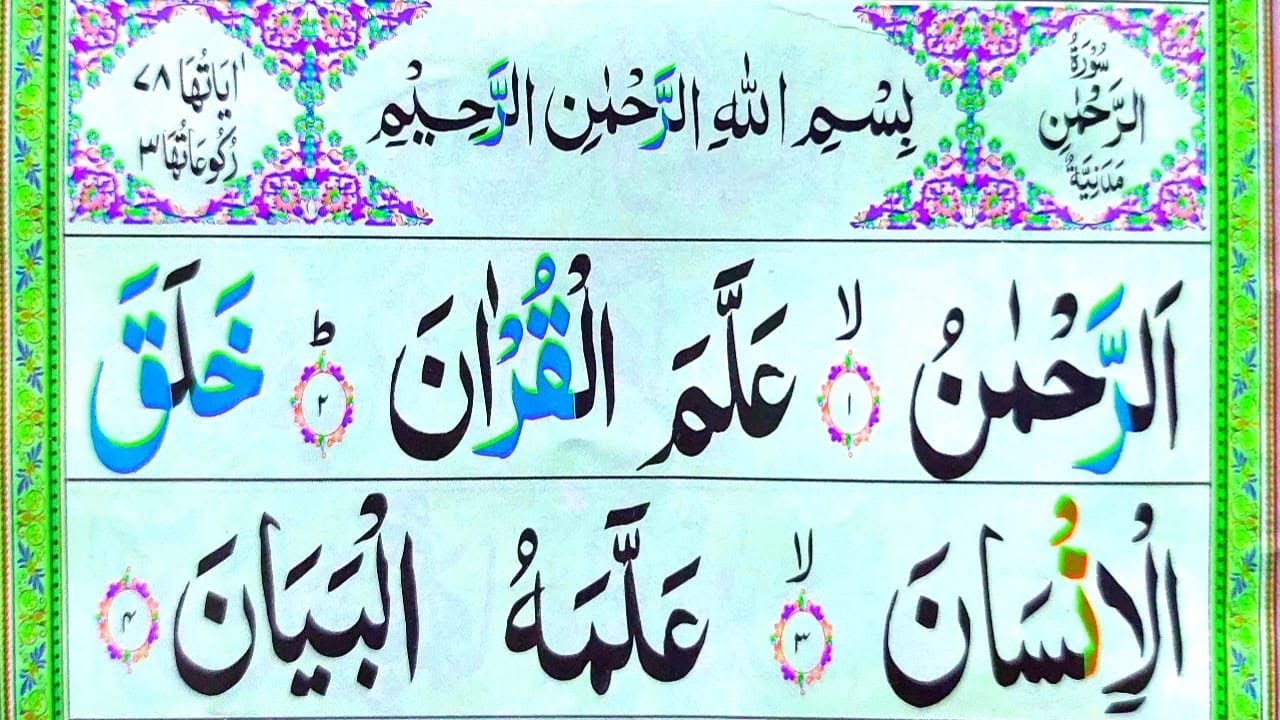 سُورَةُ
الرَّحْمٰنِ
مَدَنِيَّةٌ
بِسْمِ اللهِ الرَّحْمٰنِ الرَّحِيْمِ
اٰيَاتُهَا ٧٨
رُكُوعَاتُهَا ٣
اَلرَّحْمٰنُ ۙ ١ عَلَّمَ الْقُرْاٰنَ ؕ ٢ خَلَقَ
الْاِنْسَانَ ۙ ٣ عَلَّمَهُ الْبَيَانَ ۴